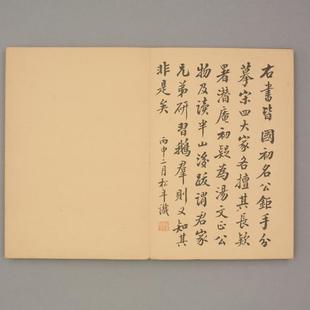 右書皆 國初名公鉅手分
摹宋四大家各擅其長欵
署潛庵初疑為湯文正公
物及讀半山後跋謂君家
兄弟研習鵝羣則又知其
非是矣
丙申二月松年識